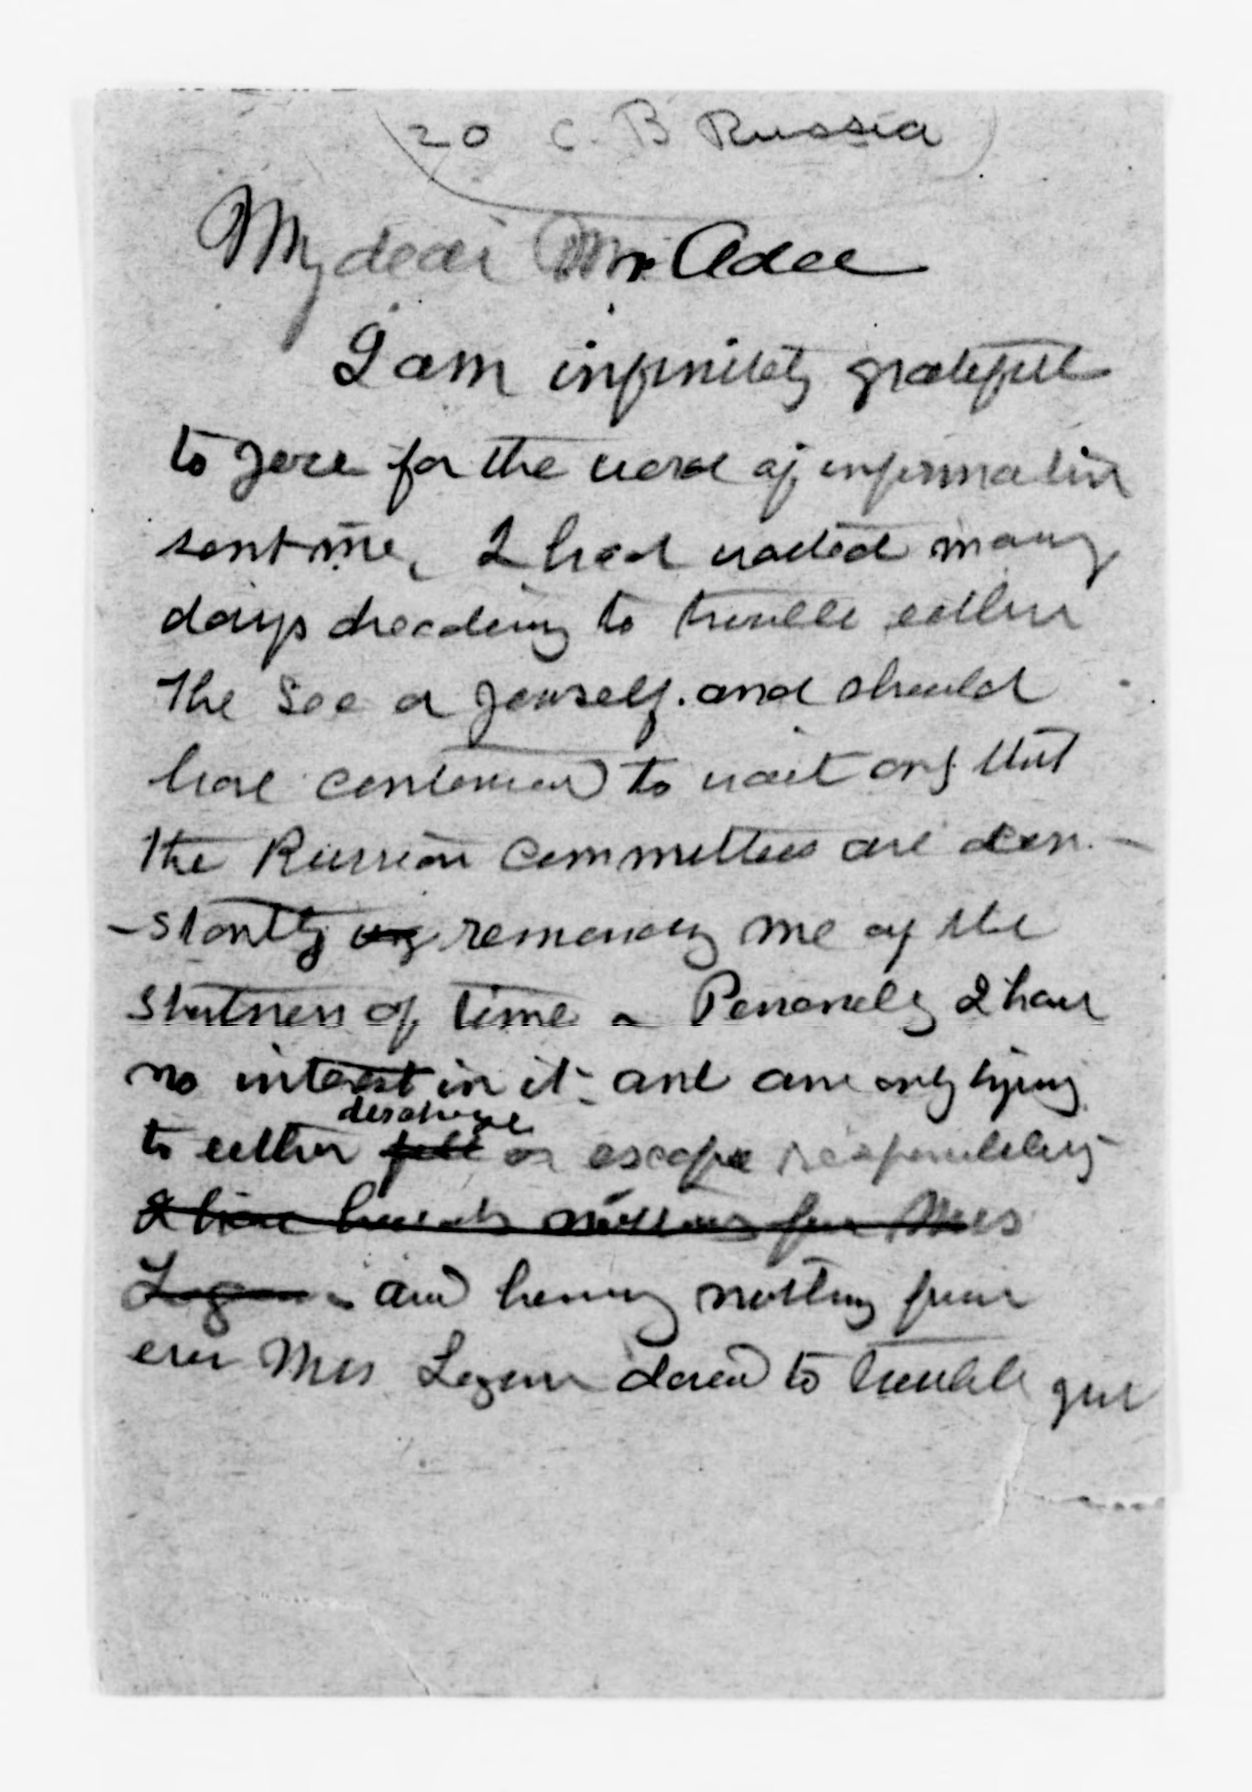 20 C. B Russia
My dear Mr Adee
I am infinitely grateful
to you for the word of information
sent me, I had waited many
days dreading to trouble either
the Sec or yourself. and should
have continued to wait only that
the Russian Committees are con-
-stantly urg remindg me of the
shortness of time - Personally I have
no interest in it - and am only trying
to either fill discharge or escape responsibility
I have heard nothing from Mrs
Logan - and hearing nothing from
ever Mrs Logan dared to trouble you